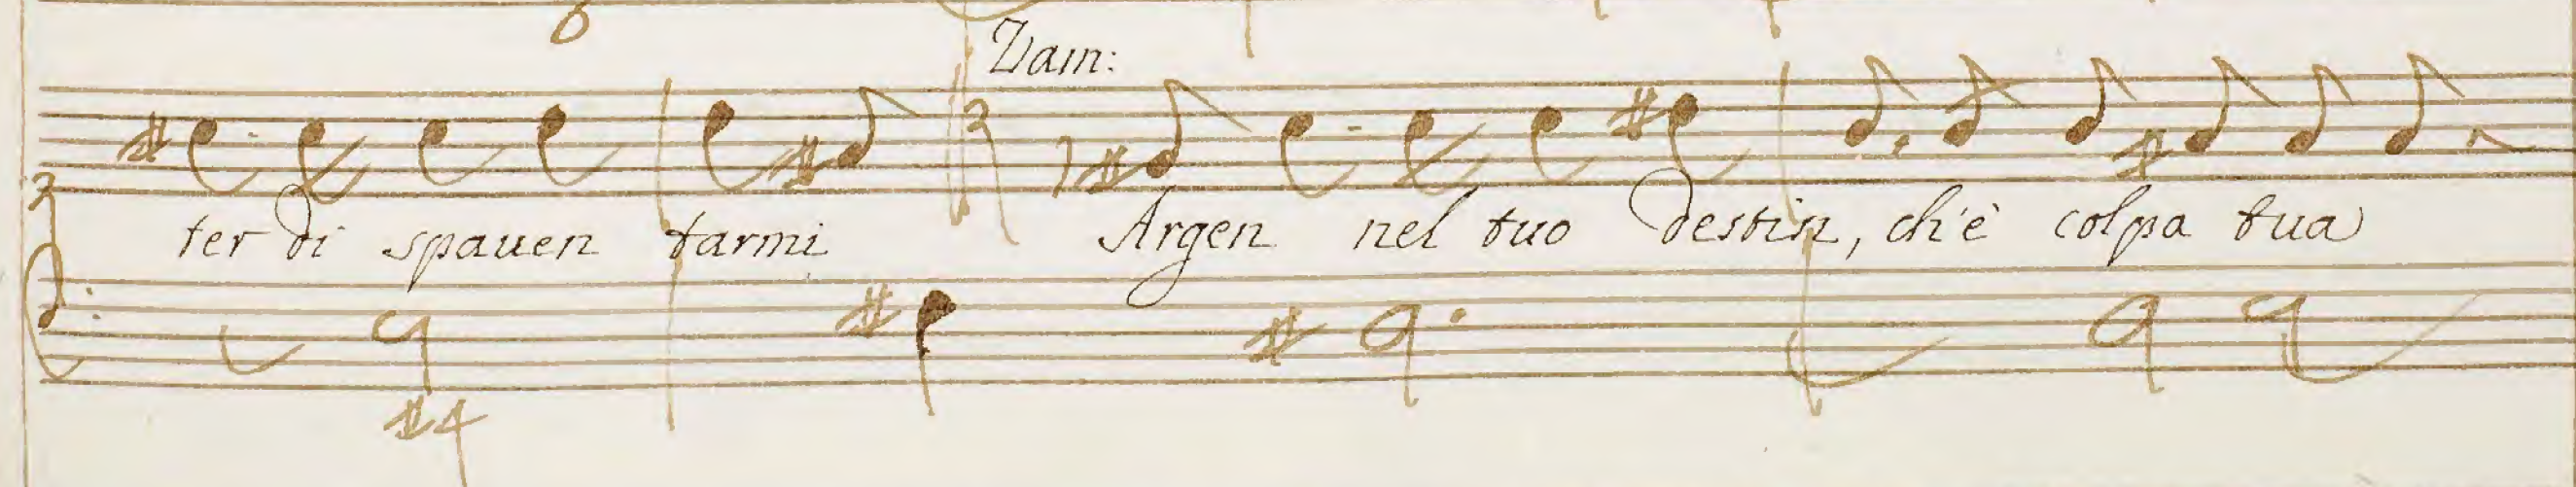 6
Zam:
ter di spauen tarmi Argen nel tuo destin, ch'è colpa tua
#4